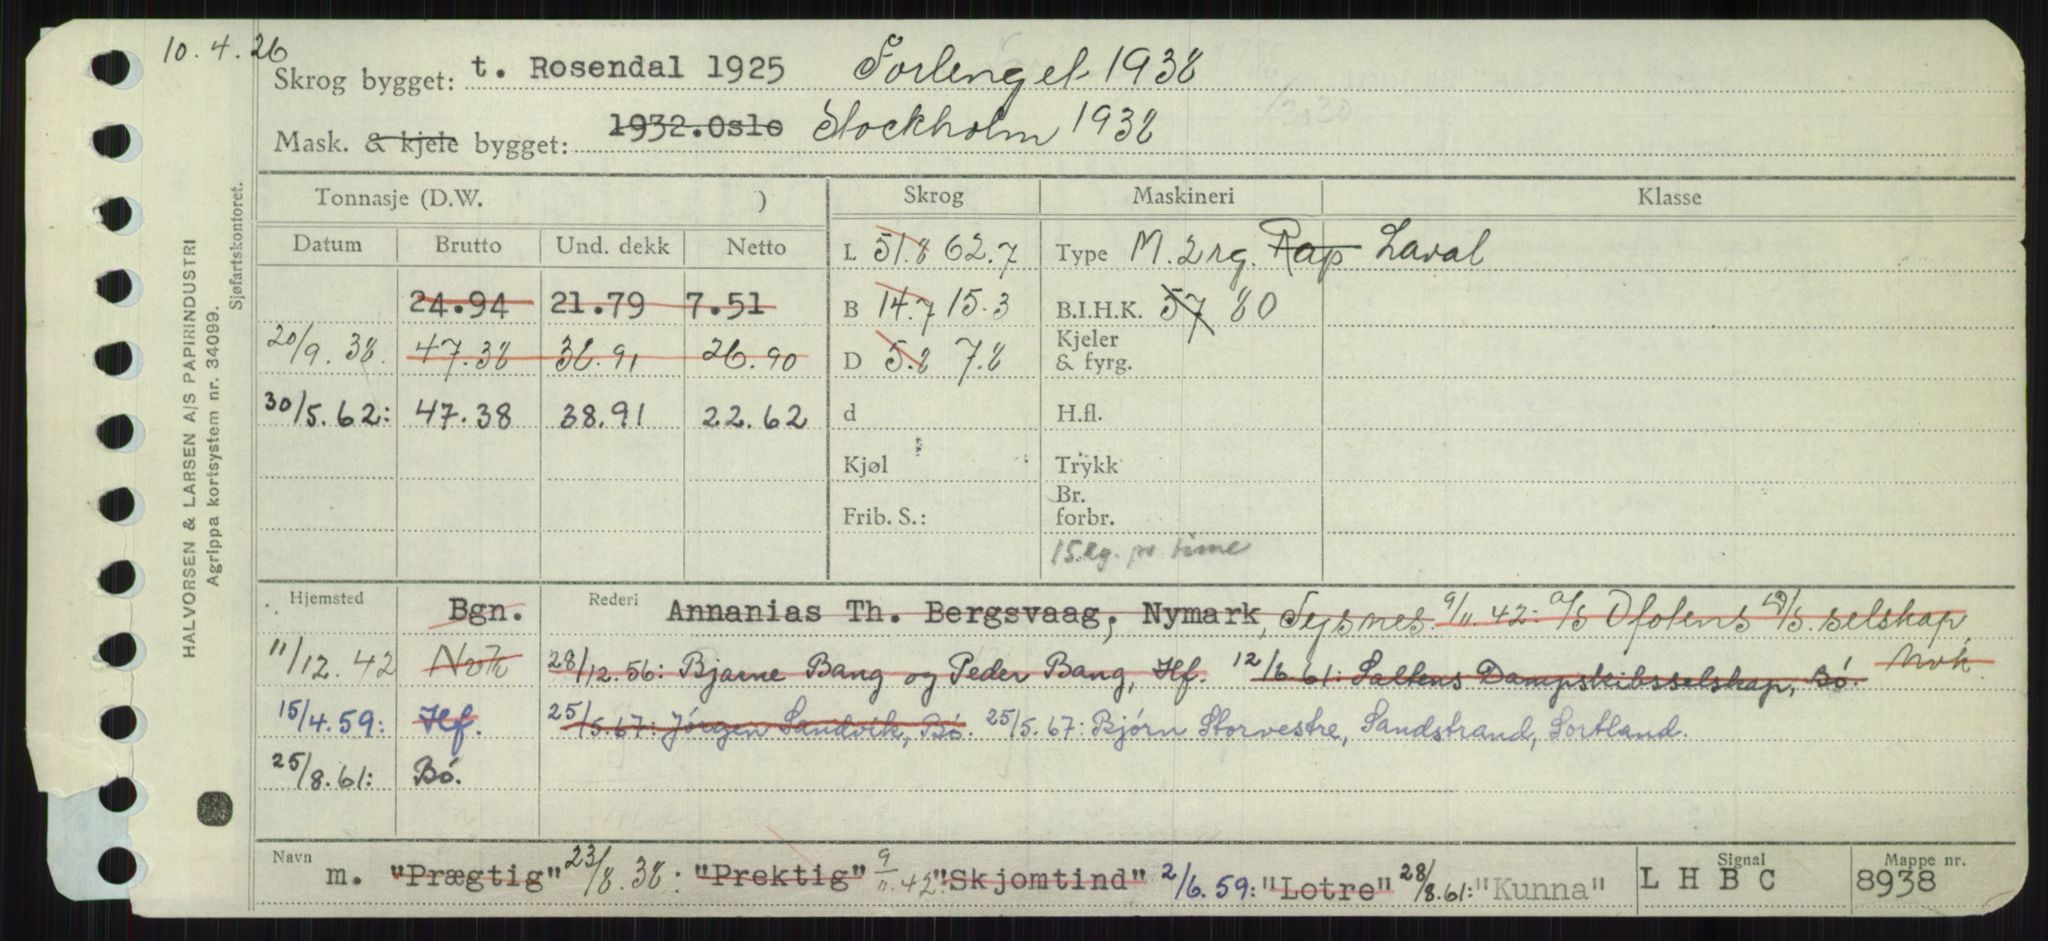 10.4.26
Skrog bygget: t. Rosendal 1925 Forlenget 1938
Mask. & kjele bygget: 1932.Oslo Stockholm 1938
Tonnasje (D.W. ) Skrog Maskineri Klasse
Datum Brutto Und. dekk Netto L 51.8 62.7 Type M. 2 rg. Rap Laval
24.94 21.79 7.51 B 14.7 15.3 B.I.H.K. 57 80
20/9.38. 47.38 38.91 26.90 D 5.8 7.8 Kjeler & fyrg.
30/5.62: 47.38 38.91 22.62 d H.fl.
Kjøl Trykk
Frib. S.: Br. forbr.
15 kg. pr. time
Hjemsted Bgn. Rederi Annanias Th. Bergsvaag, Nymark, 9/11.42: A/S Ofotens D/S.selskap,
11/12.42 28/12.56: Bjarne Bang og Peder Bang, Hf. 12/6.61: Saltens Dampskibsselskap, Bø. Nvk.
15/4.59: Hf. 25/5.67: Jørgen Sandvik, Bø. 25/5.67: Bjørn Storvestre, Sandstrand, Sortland.
25/8.61: Bø.
Navn m. "Prægtig" 23/8.38: "Prektig" 9/11.42: "Skjomtind" 2/6.59: "Lotre" 28/8.61: "Kunna" Signal L H B C Mappe nr. 8938
HALVORSEN & LARSEN A/S PAPIRINDUSTRI
Agrippa kortsystem nr. 34099.
Sjøfartskontoret.